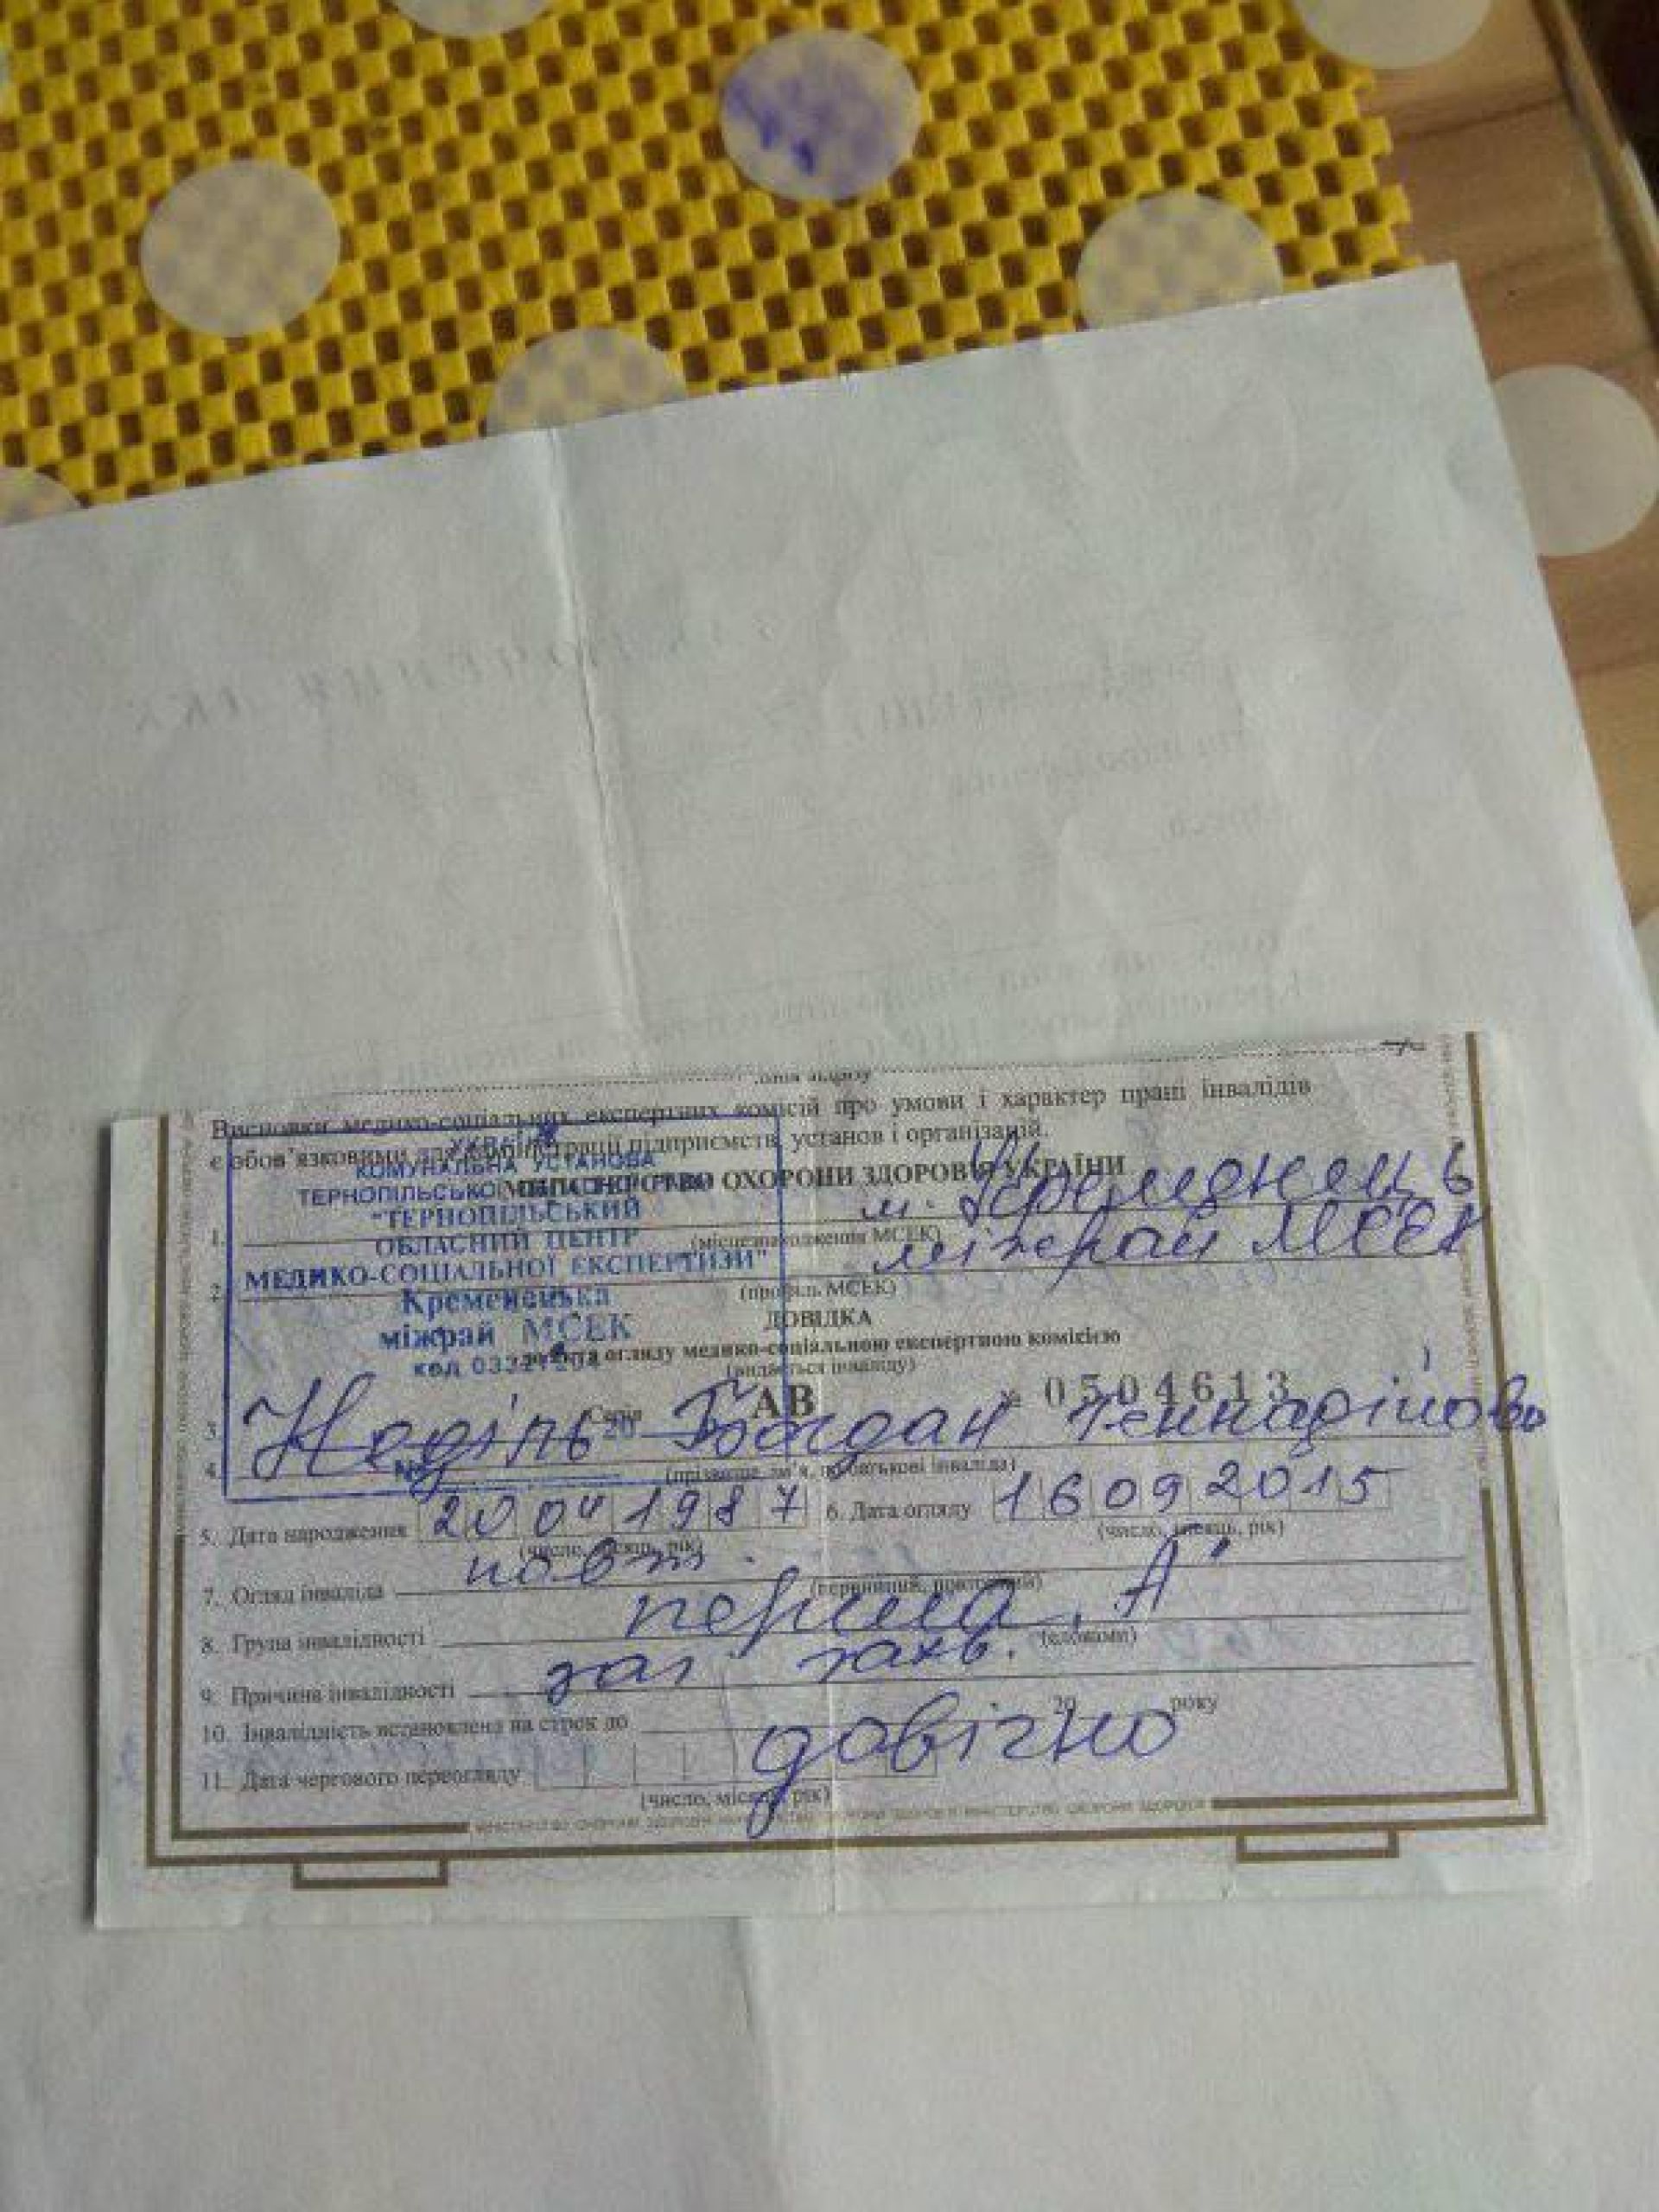 Висновки медико-соціальних експертних комісій про умови і характер праці інвалідів
є обов'язковими для адміністрації підприємств, установ і організацій.
УКРАЇНА
КОМУНАЛЬНА УСТАНОВА
ТЕРНОПІЛЬСЬКОЇ
"ТЕРНОПІЛЬСЬКИЙ
ОБЛАСНИЙ ЦЕНТР
МЕДИКО-СОЦІАЛЬНОЇ ЕКСПЕРТИЗИ"
Кременецька
міжрай МСЕК
код
20
№
МІНІСТЕРСТВО ОХОРОНИ ЗДОРОВ'Я УКРАЇНИ
1. м. Кременець
(місцезнаходження МСЕК)
2. міжрай МСЕК
(профіль МСЕК)
ДОВІДКА
огляду медико-соціальною експертною комісією
(видається інваліду)
Серія АВ № 0504613
3. Неділь Богдан Геннадійови
4.
(прізвище, ім'я, по батькові інваліда)
5. Дата народження 20 04 1987 6. Дата огляду 16 09 2015
(число, місяць, рік) (число, місяць, рік)
7. Огляд інваліда повт.
(первинний, повторний)
8. Група інвалідності перша "А"
(словами)
9. Причина інвалідності заг захв.
10. Інвалідність встановлена на строк до довічно 20 року
11. Дата чергового переогляду
(число, місяць, рік)